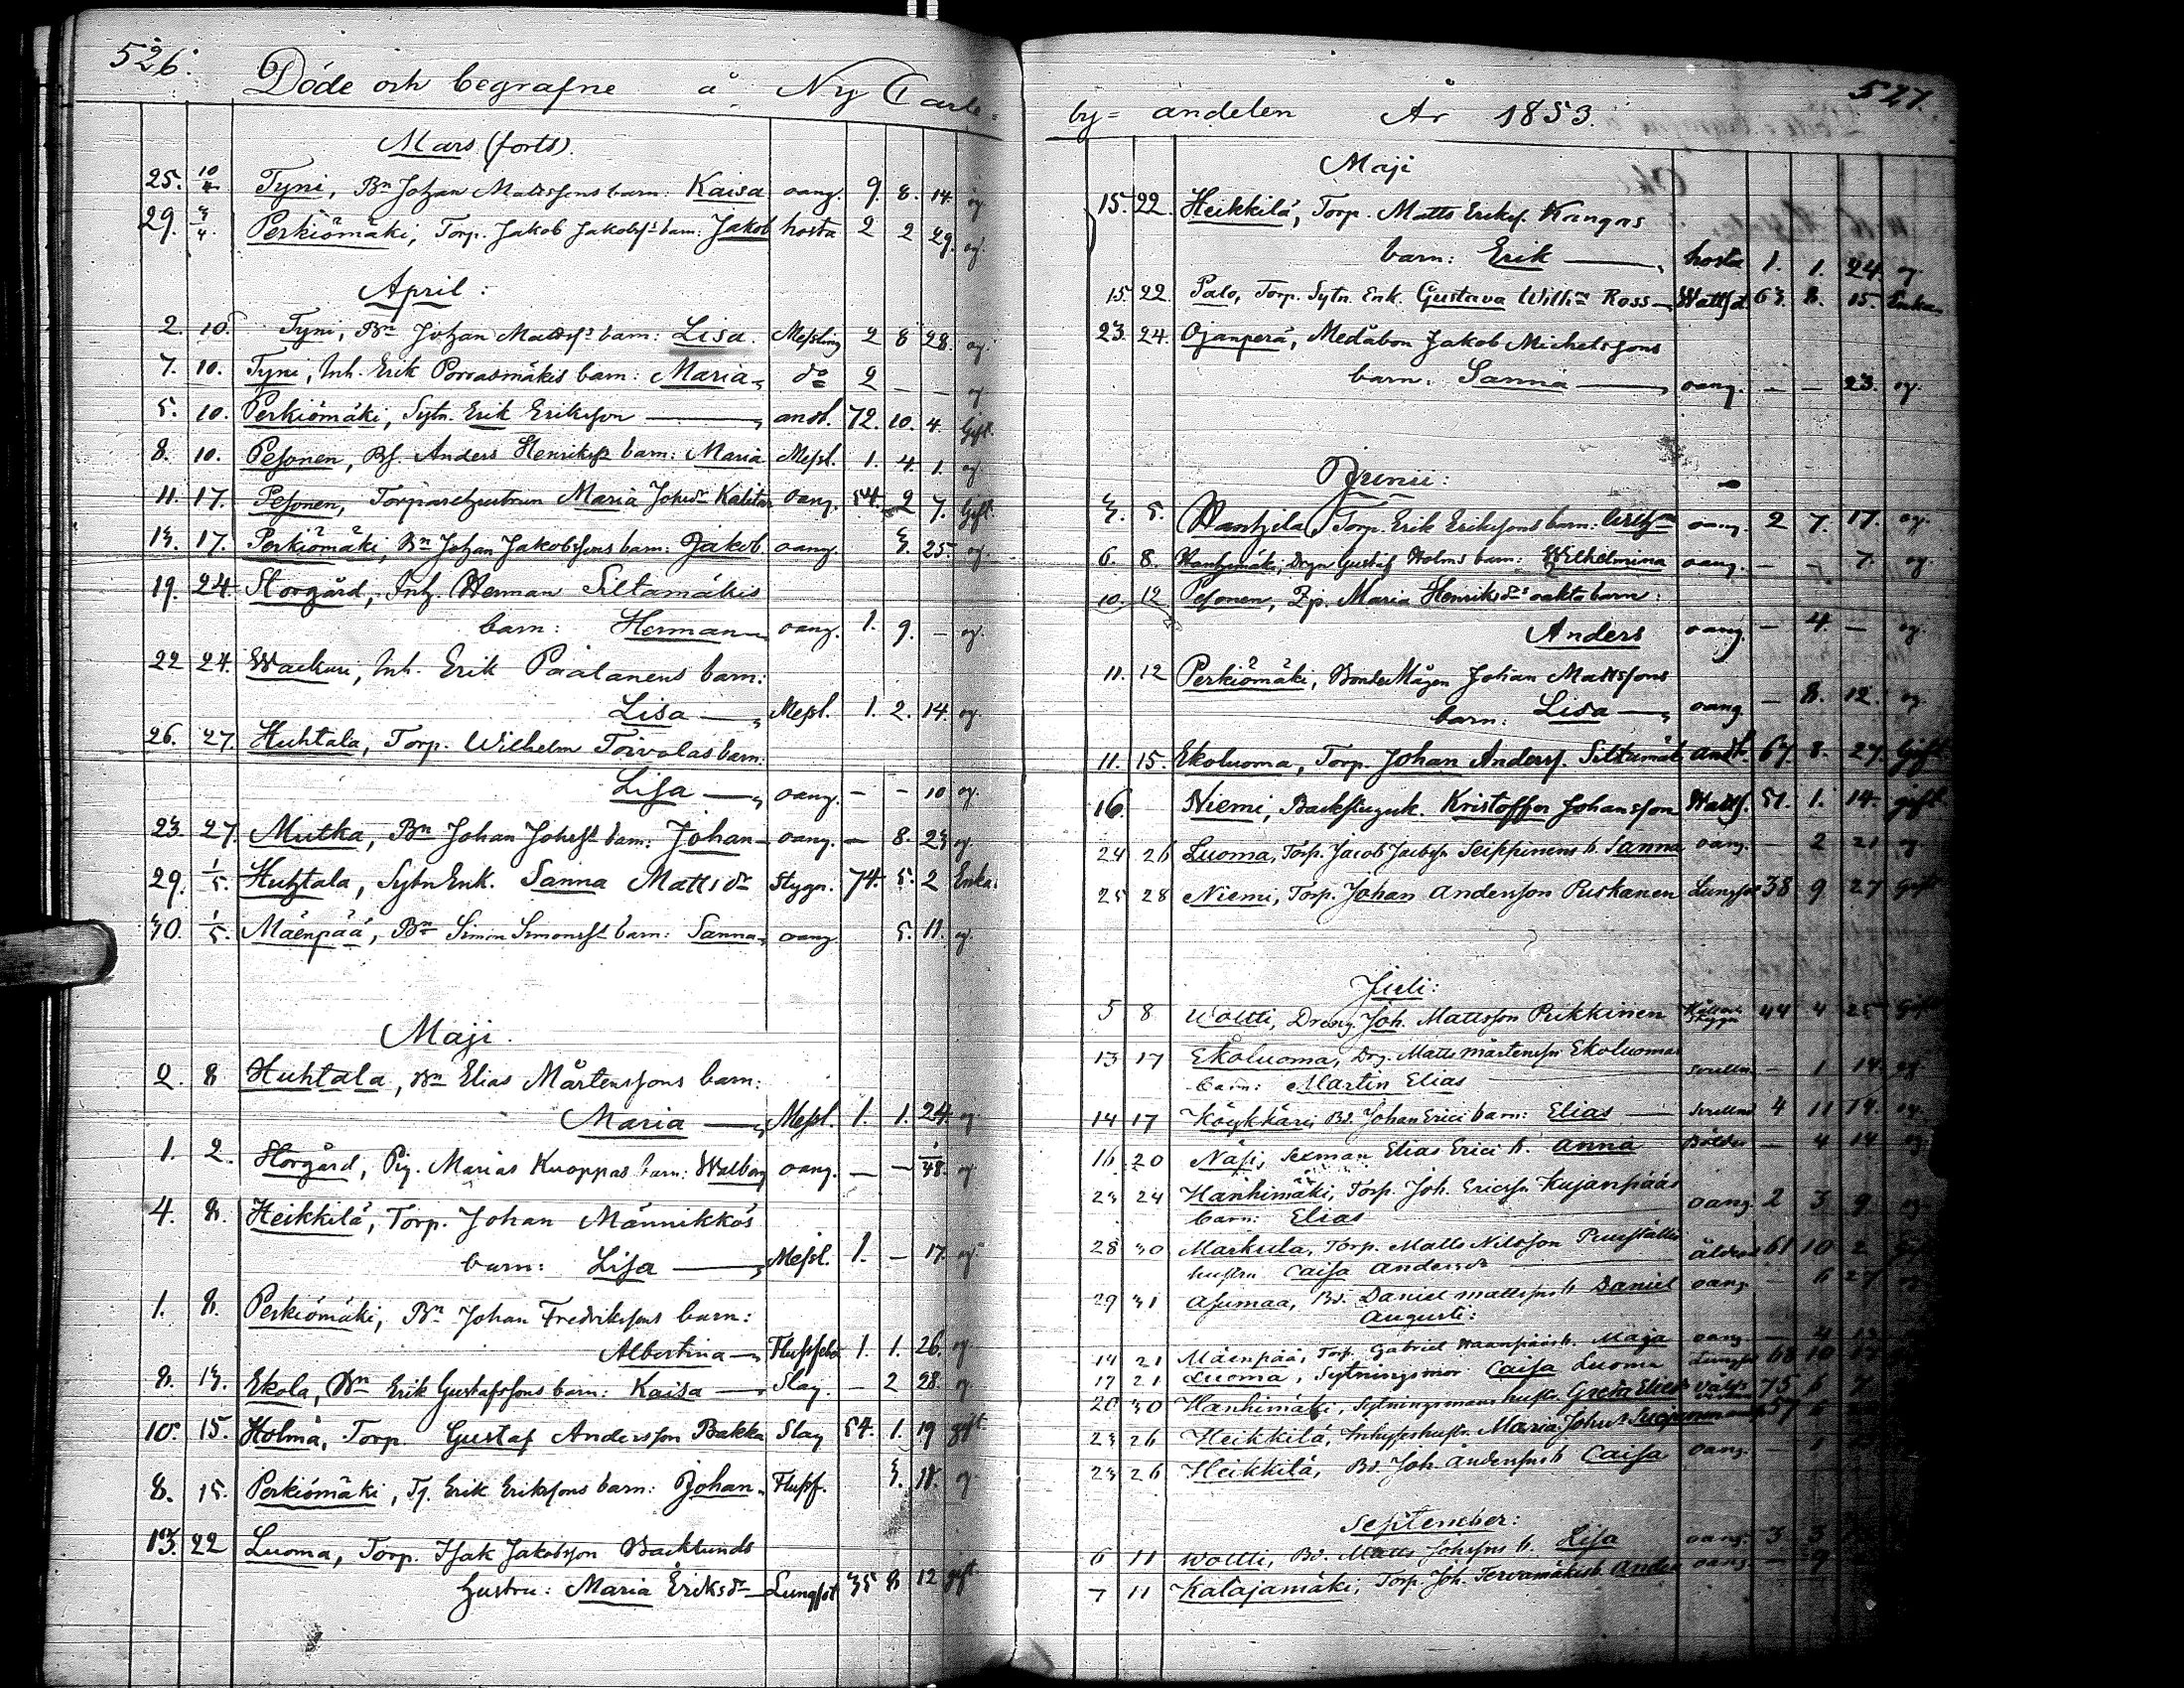 526.
Döde och begrafne å Ny Carle=
Mars (forts).
25. 10/4 Tyni, Bn Johan Mattssons barn: Kaisa oang. 9. 8. 14. og.
29. 3/4. Perkiömäki, Torp. Jakob Jakobss barn: Jakob hosta 2 2 29. og.
April:
2. 10. Tyni, Bn Johan Mattss barn: Lisa. Messling 2 8 28. og.
7. 10. Tyni, Inh. Erik Porrasmäkis barn: Maria do 2 — — og
5. 10. Perkiömäki, Sytn. Erik Eriksson — andt. 72. 10. 4. Gift.
8. 10. Pesonen, Bs. Anders Henrikss barn: Maria Messl. 1. 4. 1. og.
11. 17. Pesonen, Torparehustrun Maria Johsdr oang. 54. 2 7. Gift.
13. 17. Perkiömäki, Bn Johan Jakobssons barn: Jakob oang. 3. 25. og.
19. 24. Storgård, Inh. Herman Siltamäkis
barn: Herman — oang. 1. 9. — og.
22 24. Wackuri, Inh. Erik Paalanens barn:
Lisa — Messl. 1. 2. 14. og.
26. 27. Huhtala, Torp. Wilhelm Toivolas barn.
Lisa — oang. — — 10 og.
23. 27. Mutka, Bn Johan Johss barn: Johan — oang. — 8. 23 og.
29. 1/5. Huhtala, Sytn Enk. Sanna Mattsdr Stygn. 74. 5. 2 Enka.
30. 1/5. Mäenpää, Bn Simon Simonss barn: Sanna — oang 5. 11. og.
Maji.
2. 8 Huhtala, Bn Elias Mårtenssons barn:
Maria — Messl. 1. 1. 24. og
1. 2. Storgård, Pig. Marias Knoppas barn: Walborg oang. — — 1/48. og
4. 8. Heikkilä, Torp. Johan Männikkös
barn: Lisa — Messl. 1. — 17. og.
1. 8. Perkiömäki, Bn Johan Fredrikssons barn:
Albertina — 1. 1. 26. og
8. 13. Ekola, Bn Erik Gustafssons barn: Kaisa — Slag. — 2 28. og
10. 15. Holma, Torp. Gustaf Andersson Bakka Slag 54. 1. 19 gift.
8. 15. Perkiömäki, Tj. Erik Erikssons barn: Johan. 3. 18. og
13. 22 Luoma, Torp. Isak Jakobsson Backlunds
hustru: Maria Eriksdr — Lungsot 35 8 12 gift.
527.
by= andelen År 1853.
Maji
15. 22. Heikkilä, Torp. Matts Erikss. Kangas
barn: Erik — hosta 1. 1. 24. og.
15. 22. Palo, Torp. Sytn. Enk. Gustava Wilhm Ross — Wattsot. 63. 8. 15. Enka.
23. 24. Ojanperä, Medåbon Jakob Michelssons
barn: Sanna — oang. — — 23. og.
Junii:
3. 5. Torp. Erik Erikssons barn: oang. 2 7. 17. og.
6. 8. Drgn Gustaf Holms barn: Wilhelmina oang. — — 7. og
10. 12 Pesonen, Pp. Maria Henriksdrs oäkta barn:
Anders oang. — 4. — og.
11. 12 Perkiömäki, BondeMågen Johan Mattssons
barn: Lisa — oang — 8. 12. og
11. 15. Ekoluoma, Torp. Johan Anderss. Siltamäki andt. 67. 8. 27. Gift
16. Niemi, Kristoffer Johansson Watts. 51. 1. 14. gift
24 26 Luoma, Torp. Jacob Jacobsn Seippinens b. Sanna oang. — 2 21 og
25 28 Niemi, Torp. Johan Andersson Puskanen Lungsot 38 9 27 Gift
Juli:
5 8 Woltti, Dreng. Joh. Mattsson Pukkinen 44 4 25 Gift
13 17 Ekoluoma, Drg. Matts Mårtenssn Ekoluomas
barn: Martin Elias — 1 14. og.
14 17 Köykkäri, Bd. Johan Erici barn: Elias — 4 11 14. og.
16 20 Näsi, Sexman Elias Erici b. Anna Bölder — 4 14 og
23 24 Hanhimäki, Torp. Joh. Ericssn Kujanpääs
barn: Elias oang. 2 3 9. og.
28 30 Markula, Torp. Matts Nilsson
hustru Caisa Andersdr ålderd 61 10 2
29 31 Asumaa, Bd. Daniel Mattssns b Daniel oang — 6 27
Augusti:
14 21 Mäenpää, Torp. Gabriel b. Maja oang. — 4
17 21 Luoma, Sytningsmor Caisa Luoma Lungsot 68 10
20 30 Hanhimäki, Sytningsmans hustr. Greta 75 6 7
23 26 Heikkilä, Inhyseshustr. Maria Johsdr 57 6
23 26 Heikkilä, Bd. Joh. Anderssns b Caisa oang. — 1
September:
6 11 Woltti, Bd. Matts Johssns b. Lisa oang. 3 3
7 11 Katajamäki, Torp. Joh. Tervamäkis b. oang. — 9